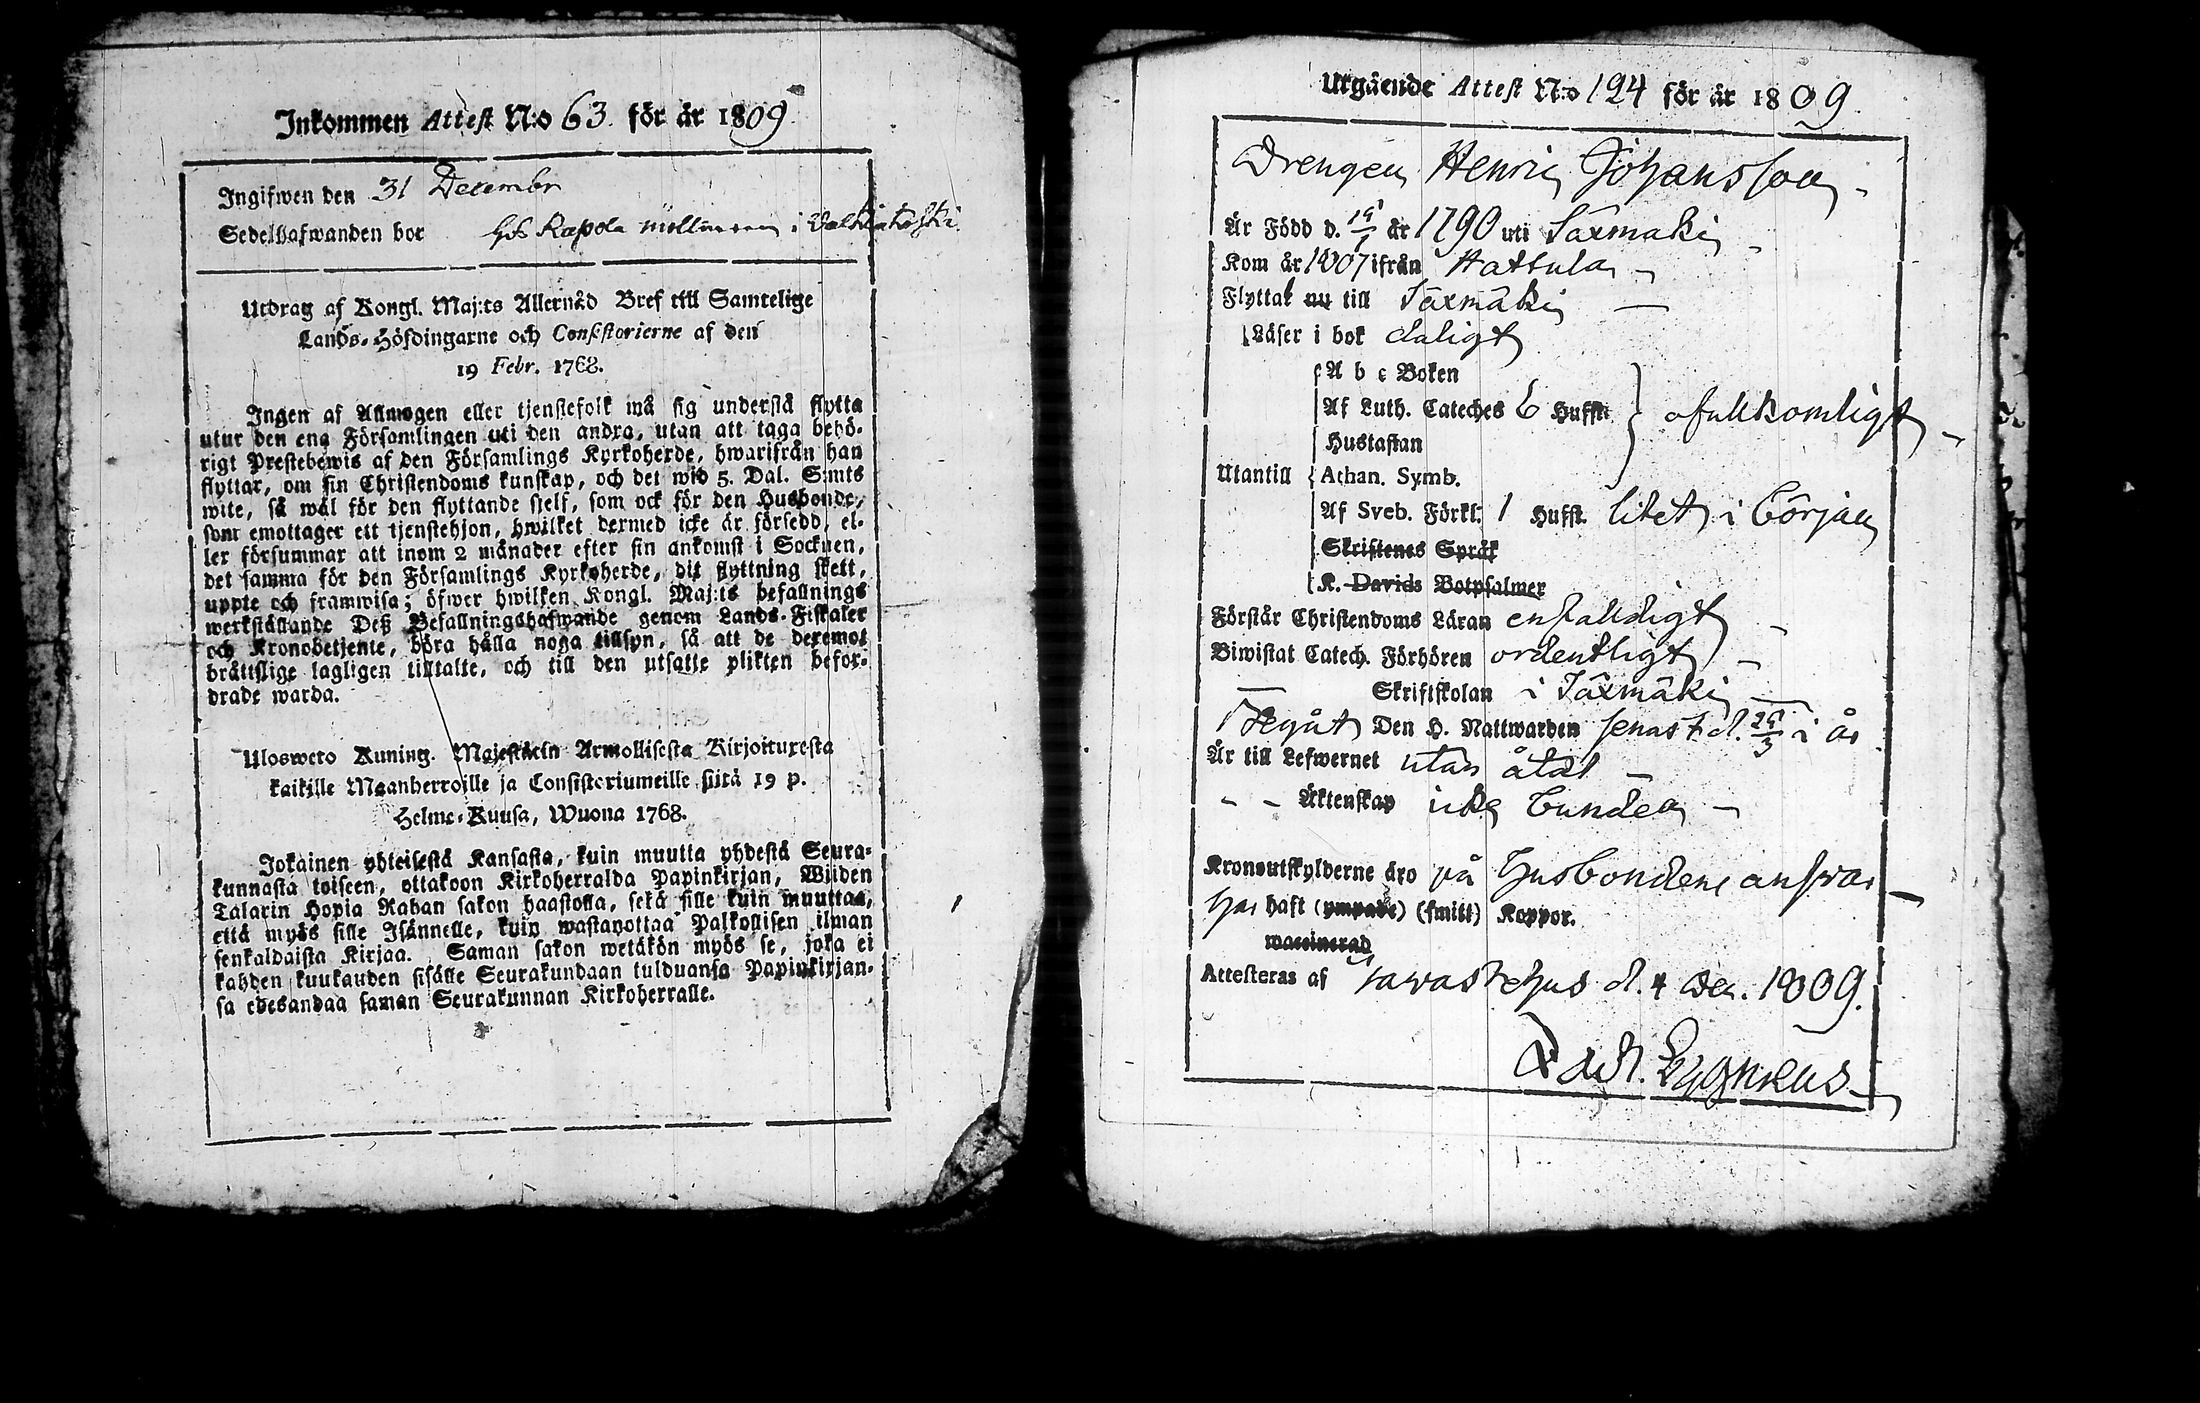 Inkommen Attest N:o 63 för år 1809.
Ingifwen den 31 Decembr
Sedelhafwanden bor hos Rapola möllnaren i Valkiakoski
Utdrag af Kongl. Maj:ts Allernåd Bref till Samtelige
Lands-Höfdingarne och Consistorierne af den
19 Febr. 1768.
Ingen af Allmogen eller tjenstefolk må sig understå flytta
utur den ena Församlingen uti den andra, utan att taga behö-
rigt Prestebewis af den Församlings Kyrkoherde, hwarifrån han
flyttar, om sin Christendoms kunskap, och det wid 5. Dal. S:mts
wite, så wäl för den flyttande sjelf, som ock för den Husbonde,
som emottager ett tjenstehjon, hwilket dermed icke är försedd, el-
ler försummar att inom 2 månader efter sin ankomst i Socknen,
det samma för den Församlings Kyrkoherde, dit flyttning skett,
uppte och framwisa; öfwer hwilken Kongl. Maj:ts befallnings
werkställande Deß Befallningshafwande genom Lands-Fiskaler
och Kronobetjente, böra hålla noga tillsyn, så att de deremot
bråttslige lagligen tilltalte, och till den utsatte plikten befor-
drade warda.
Ulosweto Kuning. Majestätin Armollisesta Kirjoituxesta
kaikille Maanherroille ja Consistoriumeille siitä 19 p.
Helme-Kuusa, Wuona 1768.
Jokainen yhteisestä Kansasta, kuin muutta yhdestä Seura-
kunnasta toiseen, ottakoon Kirkoherralda Papinkirjan, Wiiden
Talarin Hopia Rahan sakon haastolla, sekä sille kuin muuttaa,
että myös sille Isännelle, kuin wastanottaa Palkollisen ilman
senkaldaista Kirjaa. Saman sakon wetäkön myös se, joka ei
kahden kuukauden sisälle Seurakundaan tulduansa Papinkirjan-
sa edesandaa saman Seurakunnan Kirkoherralle.
Utgående Attest N:o 194 för år 1809.
Drengen Henric Johansson
Är Född d. 19/1 år 1790 uti Säxmäki
Kom år 1807 ifrån Hattula
Flyttat nu till Säxmäki
Läser i bok daligt
A b c Boken
Af Luth. Cateches 6 Huffst. ofullkomligt
Hustaflan
Utantill Athan. Symb.
Af Sveb. Förkl: 1 Huffst. litet i början
Skriftenes Språk
K. Davids Botpsalmer
Förstår Christendoms Läran enfaldigt
Biwistat Catech. Förhören ordentligt
Skriftskolan i Säxmäki
Begåt Den H. Nattwarden senast d. 25/3 i år
Är till Lefwernet utan åtal
- - Äktenskap icke bunden
Kronoutskylderne äro på Husbondens answar
har haft (ympade) (smitt) Koppor.
waccinerad
Attesteras af Tavastehus d. 4 Dec. 1809.
Zach. Cygnæus